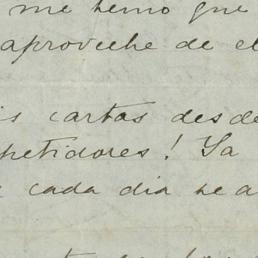 me temo que
aproveche de el
is cartas desde
petidores! Ya
cada dia se a